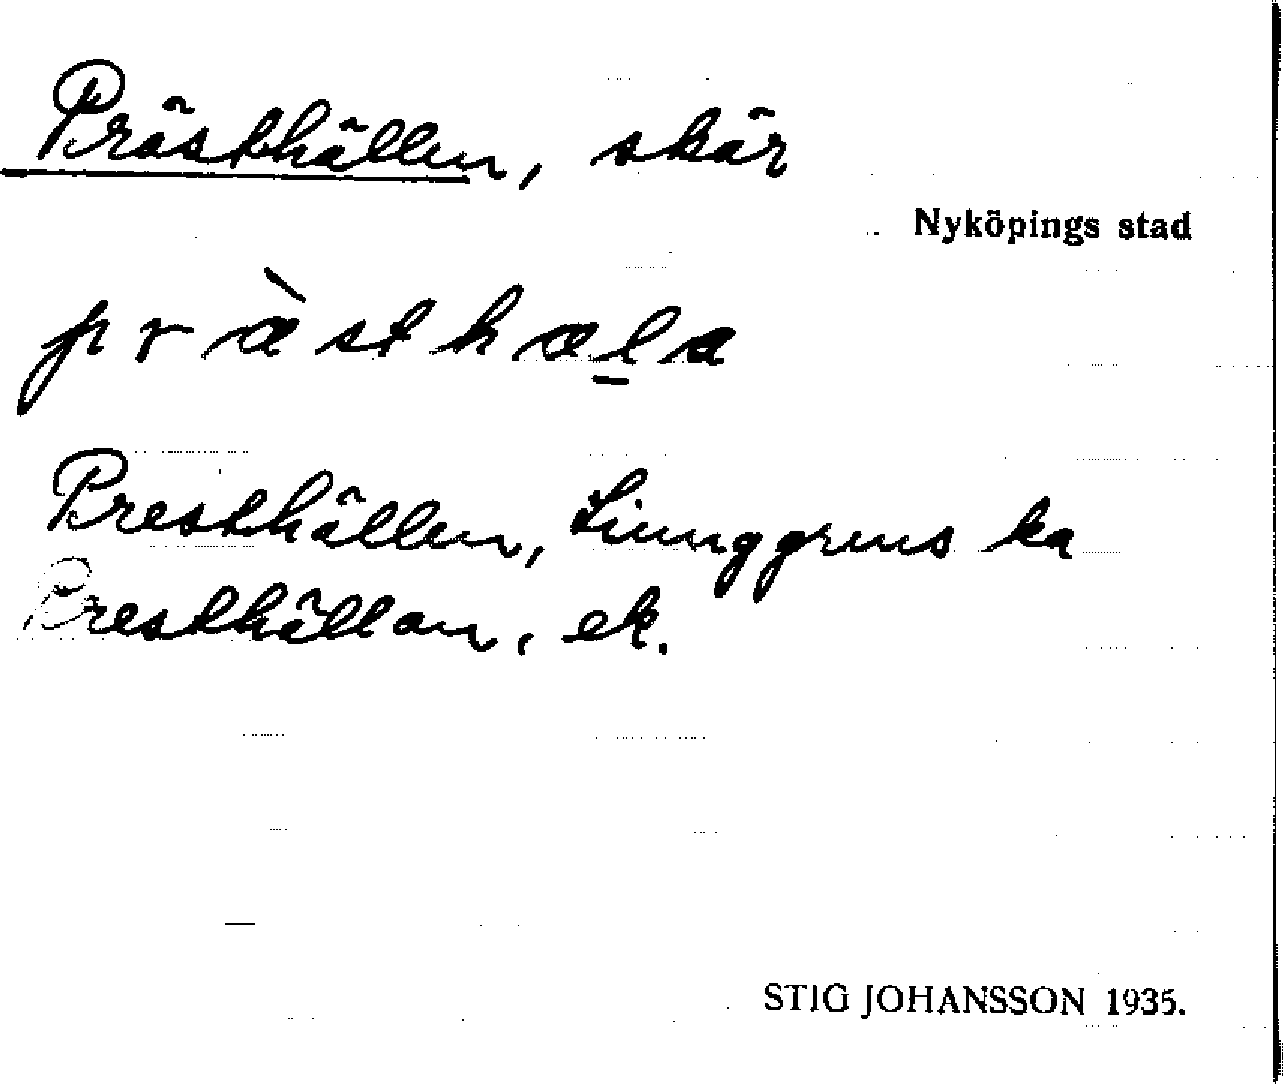 Prästhällen, skär
Nyköpings stad
præ̀sthæl̲a
Presthällen, Liunggrens ka
Presthällan, ek.
STIG JOHANSSON 1935.